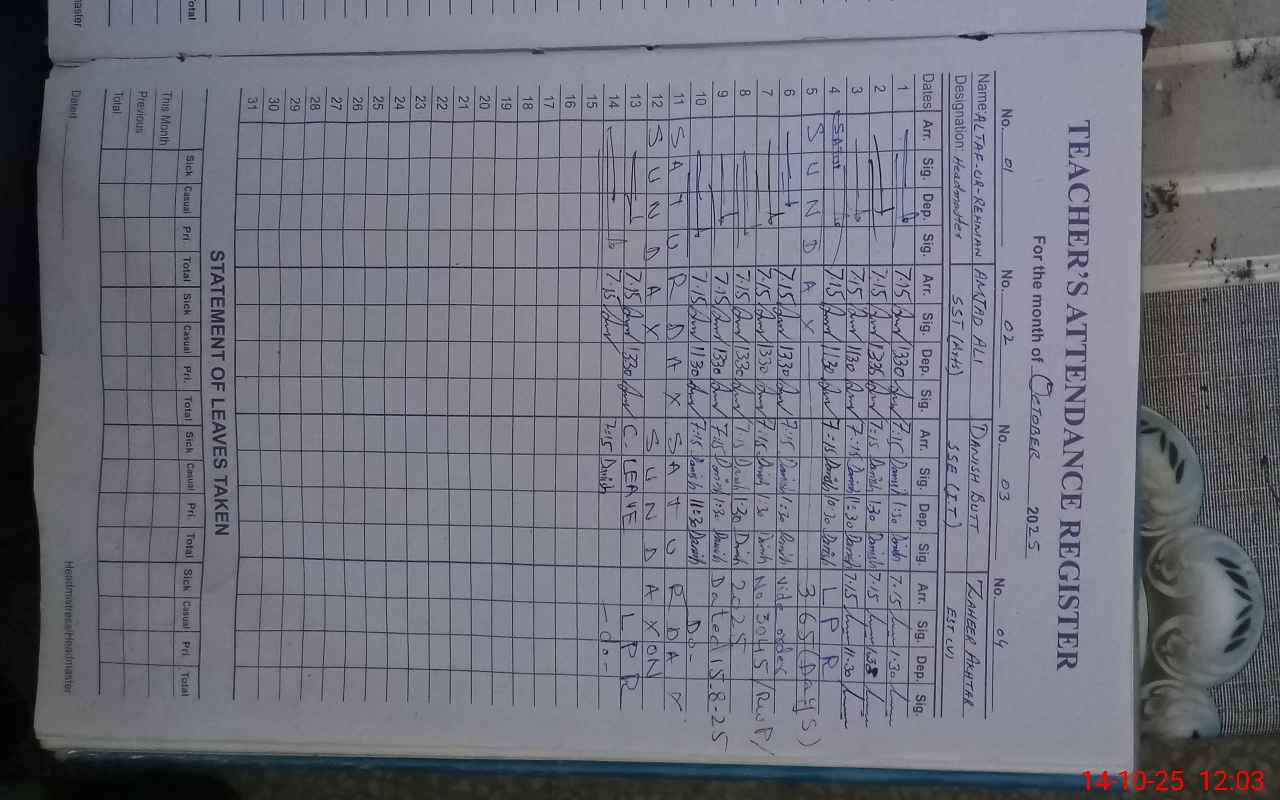 TEACHER'S ATTENDANCE REGISTER
For the month of October 2025
No. 01 No. 02 No. 03 No. 04
Name: ALTAF-UR-REHMAN AMJAD ALI DANISH BUTT ZAHEER AKHTAR
Designation: Headmaster SST (Arts) SSE (I.T) EST (V)
Dates Arr. Sig. Dep. Sig. Arr. Sig. Dep. Sig. Arr. Sig. Dep. Sig. Arr. Sig. Dep. Sig.
1 7:15 1330 7:15 Danish 1:30 Danish 7:15 1:30
2 7:15 7:15 Danish 1:30 Danish 7:15
3 7:15 1130 7:15 Danish 11:30 Danish 7:15 11:30
4 7:15 1130 7:15 Danish 10:30 Danish L P R
5 S U N D A Y 365 (Days)
6 7:15 1330 7:15 Danish 1:30 Danish vide order
7 7:15 1330 7:15 Danish 1:30 Danish No 3045/RWP/
8 7:15 1330 7:15 Danish 1:30 Danish 2025
9 7:15 1330 7:15 Danish 1:30 Danish Dated 15.8-25
10 7:15 1130 7:15 Danish 11:30 Danish Do-
11 S A T U R D A Y S A T U R D A Y
12 S U N D A Y S U N D A Y ON
13 7:15 1330 C- LEAVE L P R
14 7:15 7:15 Danish -do-
15
16
17
18
19
20
21
22
23
24
25
26
27
28
29
30
31
STATEMENT OF LEAVES TAKEN
Sick Casual Pri. Total Sick Casual Pri. Total Sick Casual Pri. Total Sick Casual Pri. Total
This Month
Previous
Total
Dated Headmistress/Headmaster
14-10-25 12:03